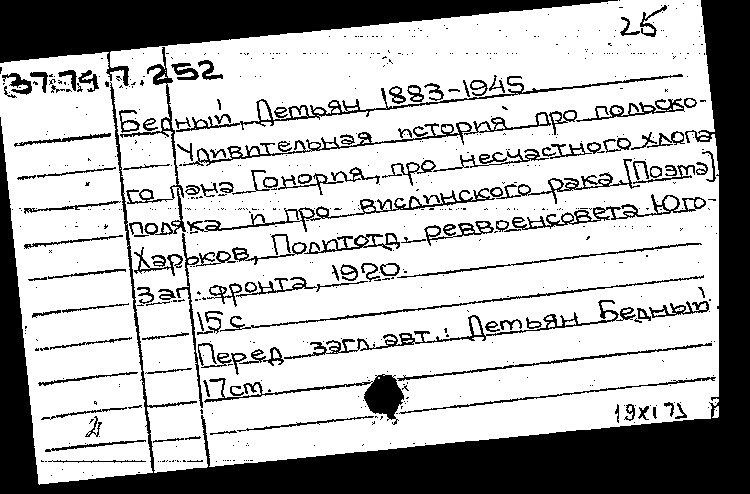 25
37.79.7.252
Бедный, Демьян, 1883-1945.
Удивительная история про польско-
го пана Гонория, про несчастного хлопа
поляка и про вислинского рака. [Поэта]
Харьков, Политотд. реввоенсовета Юго-
Зап. фронта, 1920.
15 с.
Перед загл. авт.: Демьян Бедный.
17 см.
19 XI 75